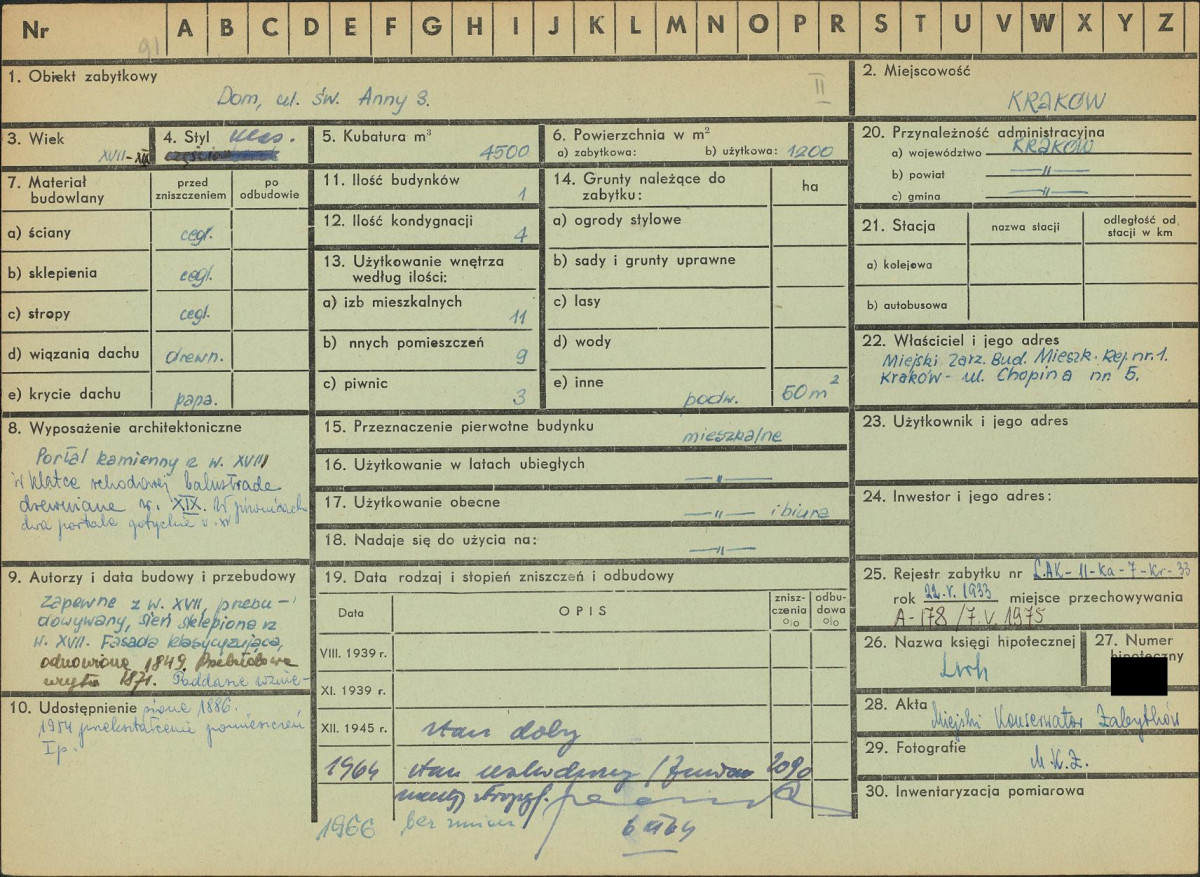 Nr
91
A B C D E F G H I J K L M N O P R S T U V W X Y Z
1. Obiekt zabytkowy
Dom, ul. św. Anny 3.
II
2. Miejscowość
KRAKÓW
3. Wiek
XVII-XIX
4. Styl
klas.
5. Kubatura m³
4500
6. Powierzchnia w m²
a) zabytkowa:
b) użytkowa: 1200
20. Przynależność administracyjna
a) województwo KRAKÓW
b) powiat —"—
c) gmina —"—
7. Materiał budowlany
przed zniszczeniem
po odbudowie
a) ściany cegl.
b) sklepienia cegl.
c) stropy cegl.
d) wiązania dachu drewn.
e) krycie dachu papa.
11. Ilość budynków
1
12. Ilość kondygnacji
4
13. Użytkowanie wnętrza według ilości:
a) izb mieszkalnych
11
b) nnych pomieszczeń
9
c) piwnic
3
14. Grunty należące do zabytku:
ha
a) ogrody stylowe
b) sady i grunty uprawne
c) lasy
d) wody
e) inne podw. 60 m²
21. Stacja
nazwa stacji
odległość od stacji w km
a) kolejowa
b) autobusowa
22. Właściciel i jego adres
Miejski Zarz. Bud. Mieszk. Rej. nr. 1.
Kraków - ul. Chopina nr 5.
8. Wyposażenie architektoniczne
Portal kamienny z w. XVIII
w klatce schodowej balustrada
drewniana w. XIX. W piwnicach
dwa portale gotyckie w. XV
15. Przeznaczenie pierwotne budynku
mieszkalne
16. Użytkowanie w latach ubiegłych
—"—
17. Użytkowanie obecne
—"— i biura
18. Nadaje się do użycia na:
—"—
23. Użytkownik i jego adres
24. Inwestor i jego adres:
9. Autorzy i data budowy i przebudowy
Zapewne z w. XVII, przebu-
dowywany, sień sklepiona z
w. XVII. Fasada klasycyzująca,
odnowiona 1849. Przebudowa
1871. Poddasze wznie-
sione 1886.
10. Udostępnienie
1954 przekształcenie pomieszczeń
I p.
19. Data rodzaj i stopień zniszczeń i odbudowy
Data
OPIS
znisz-czenia %
odbu-dowa %
VIII. 1939 r.
XI. 1939 r.
XII. 1945 r. stan dobry
1964 stan 20%
1966 bez zmian
25. Rejestr zabytku nr L.AK-11-Ka-7-Kr-33
rok 22.V.1933 miejsce przechowywania
A-178/7.V.1975
26. Nazwa księgi hipotecznej
27. Numer hipoteczny
28. Akta Miejski Konserwator Zabytków
29. Fotografie
M.K.Z.
30. Inwentaryzacja pomiarowa